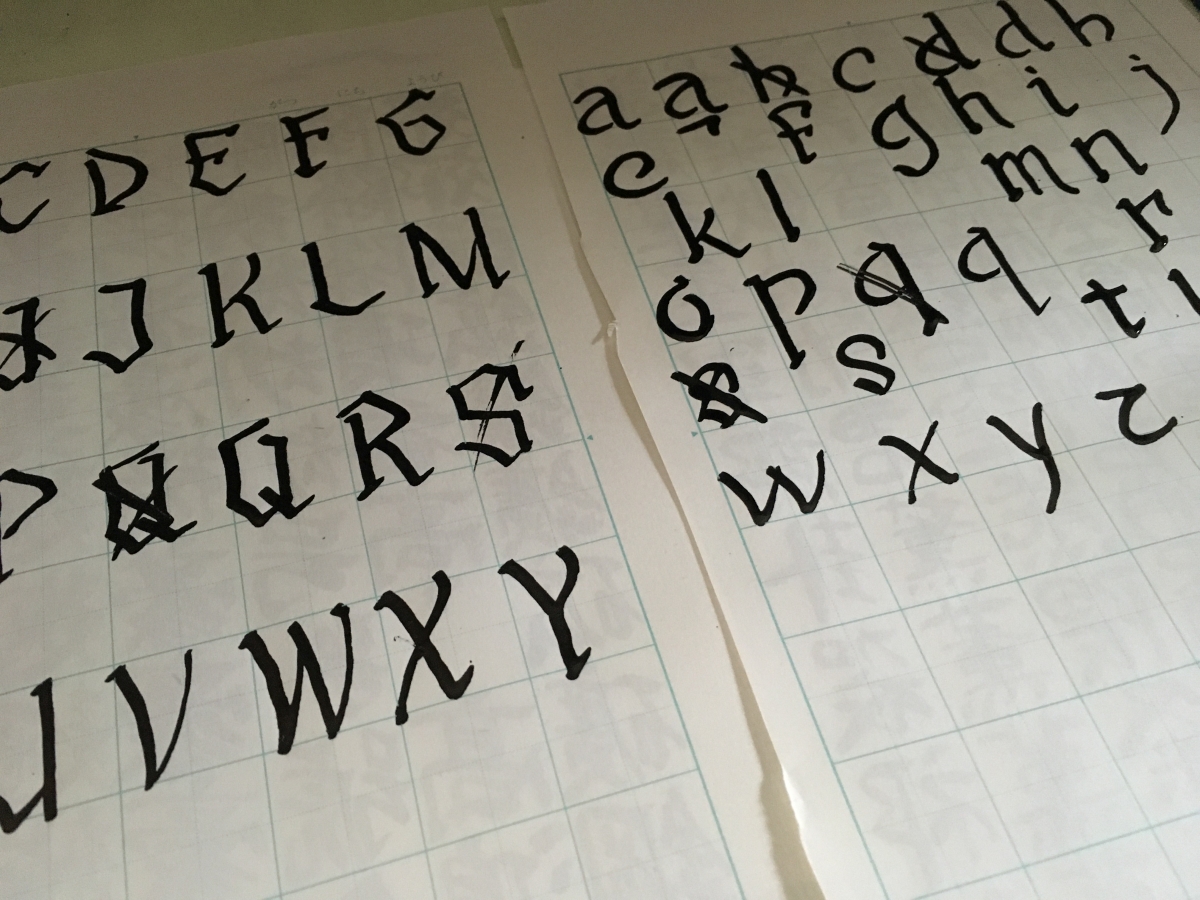 C D E F G
J K L M
P Q R S
U V W X Y
a a b c d d b
e f g h i j
k l m n
o p q q r
s s t
w x y z